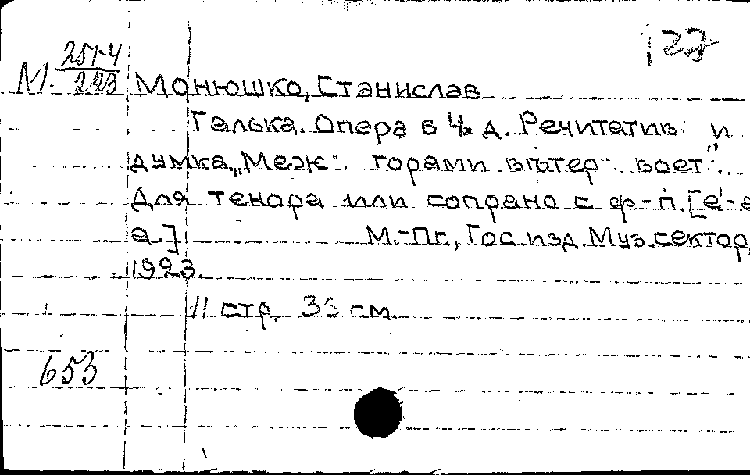 122
М. 251-4/223
Монюшко, Станислав
Галька. Опера в 4х д. Речитатив и
думка „Меж горами ветер воет".
Для тенора или сопрано с ф-п. [e'-
a.] М.-Пг., Гос изд. Муз. сектор,
1923.
11 стр. 33 см.
653